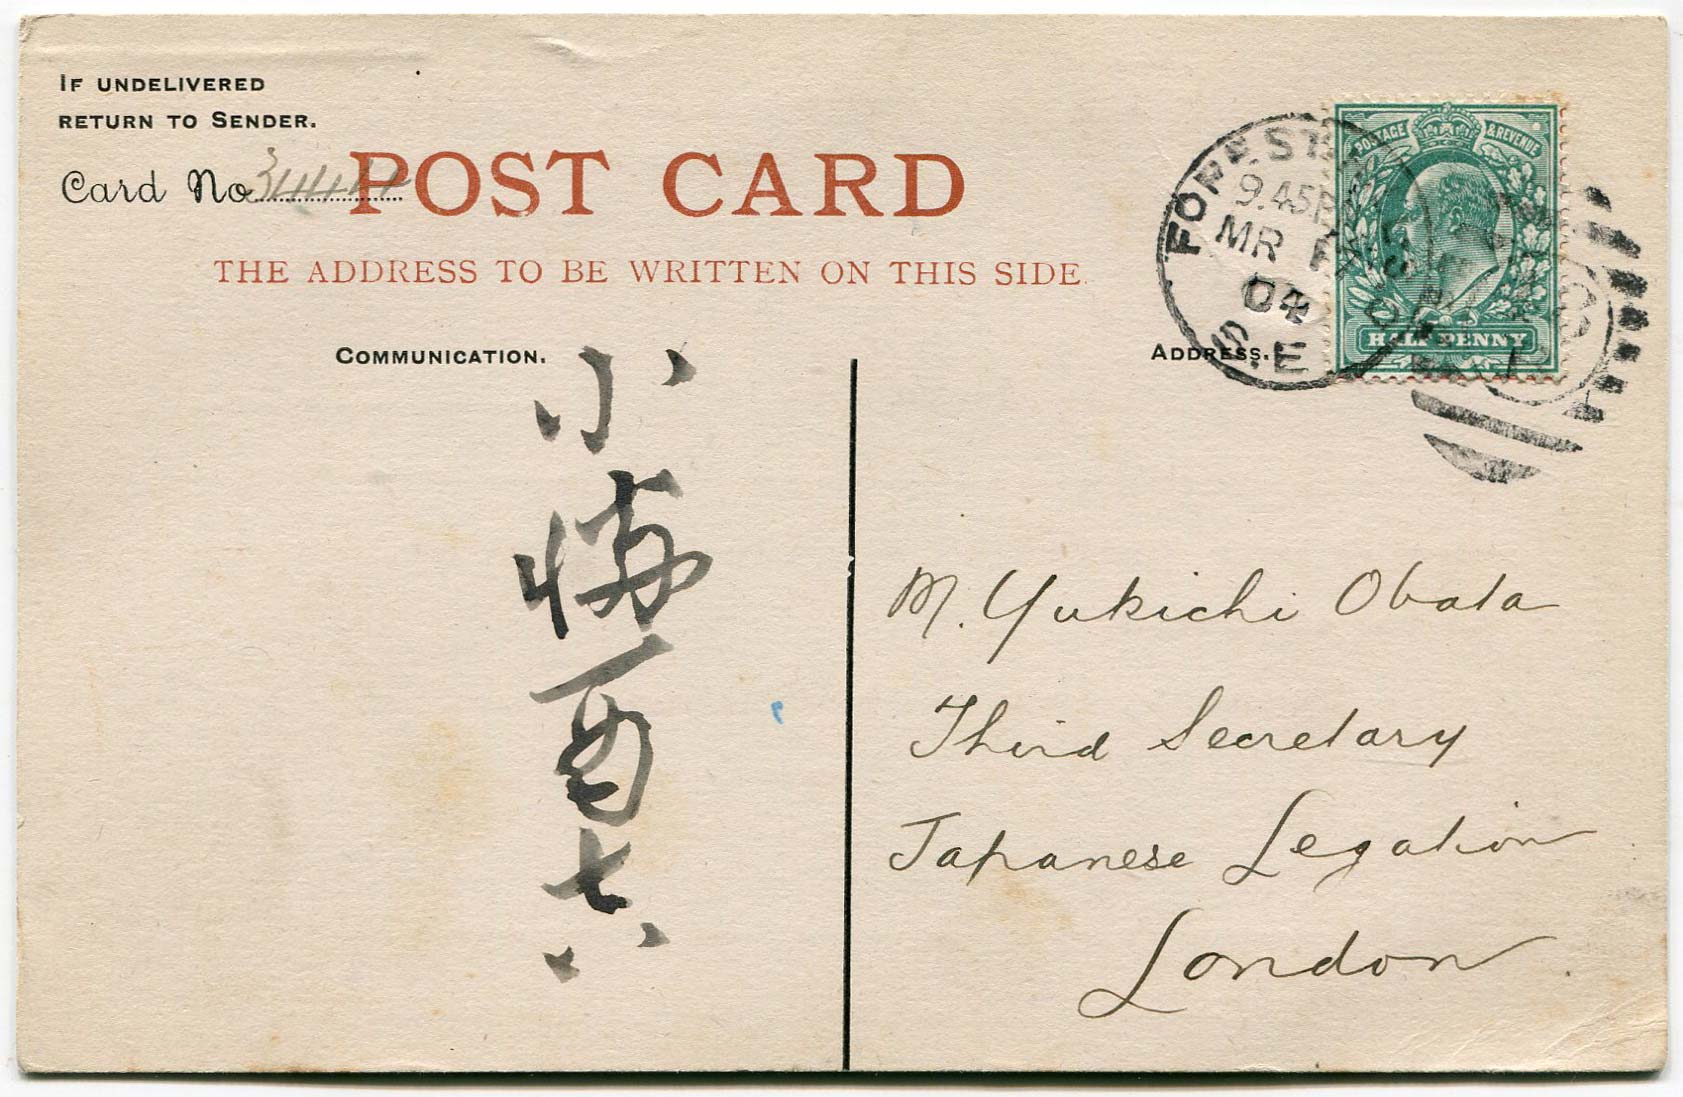 IF UNDELIVERED
RETURN TO SENDER.
Card No
POST CARD
THE ADDRESS TO BE WRITTEN ON THIS SIDE.
COMMUNICATION.
ADDRESS.
POSTAGE & REVENUE
HALF PENNY
9.45P
MR
04
S.E
小
酉
七
M. Yukichi Obata
Third Secretary
Japanese Legation
London.